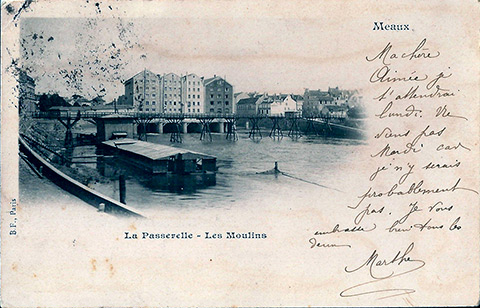 Meaux
Machère
Aimée je
t'attendrai
lundi. Ne
viens pas
Mardi car
je n'y serais
probablement
pas. Je vous
embrasse bien tous les
deux
Marthe
La Passerelle - Les Moulins
B F, Paris